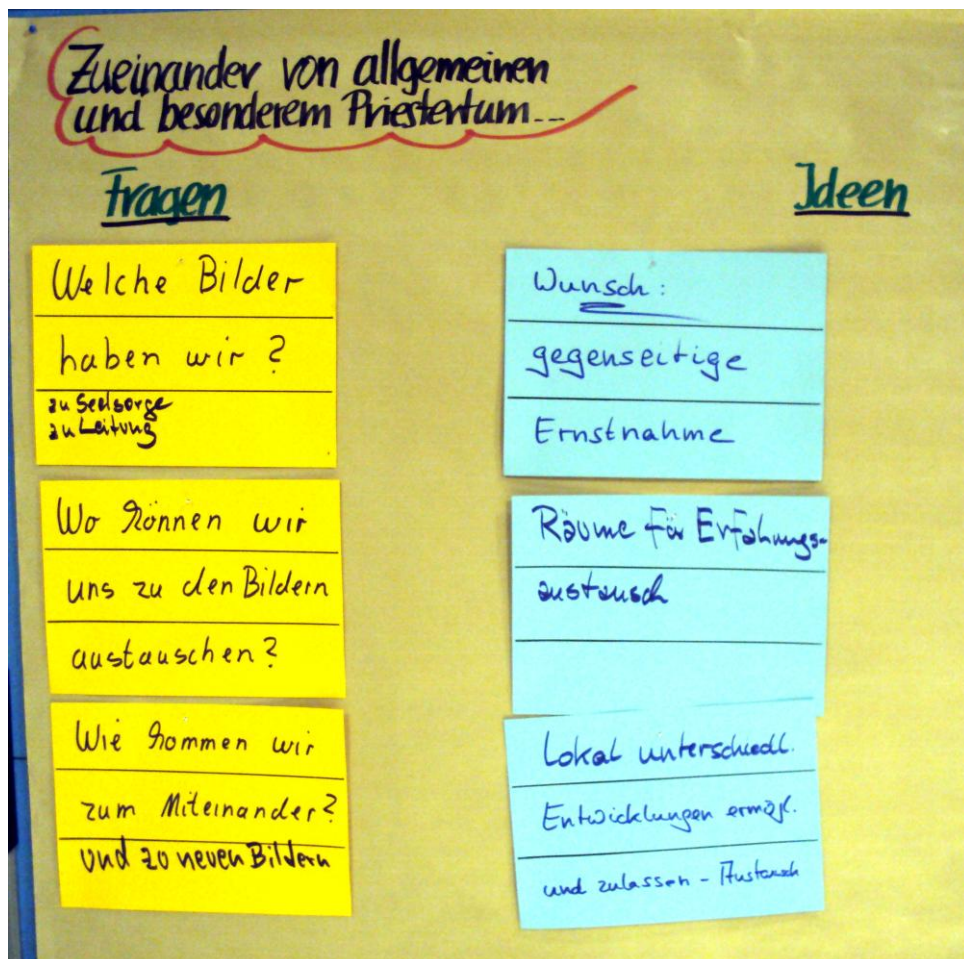 Zueinander von allgemeinen
und besonderem Priestertum...
Fragen
Welche Bilder
haben wir?
zu Seelsorge
zu Leitung
Wo können wir
uns zu den Bildern
austauschen?
Wie kommen wir
zum Miteinander?
und zu neuen Bildern
Ideen
Wunsch:
gegenseitige
Ernstnahme
Räume für Erfahrungs-
austausch
Lokal unterschiedl.
Entwicklungen ermögl.
und zulassen - Austausch